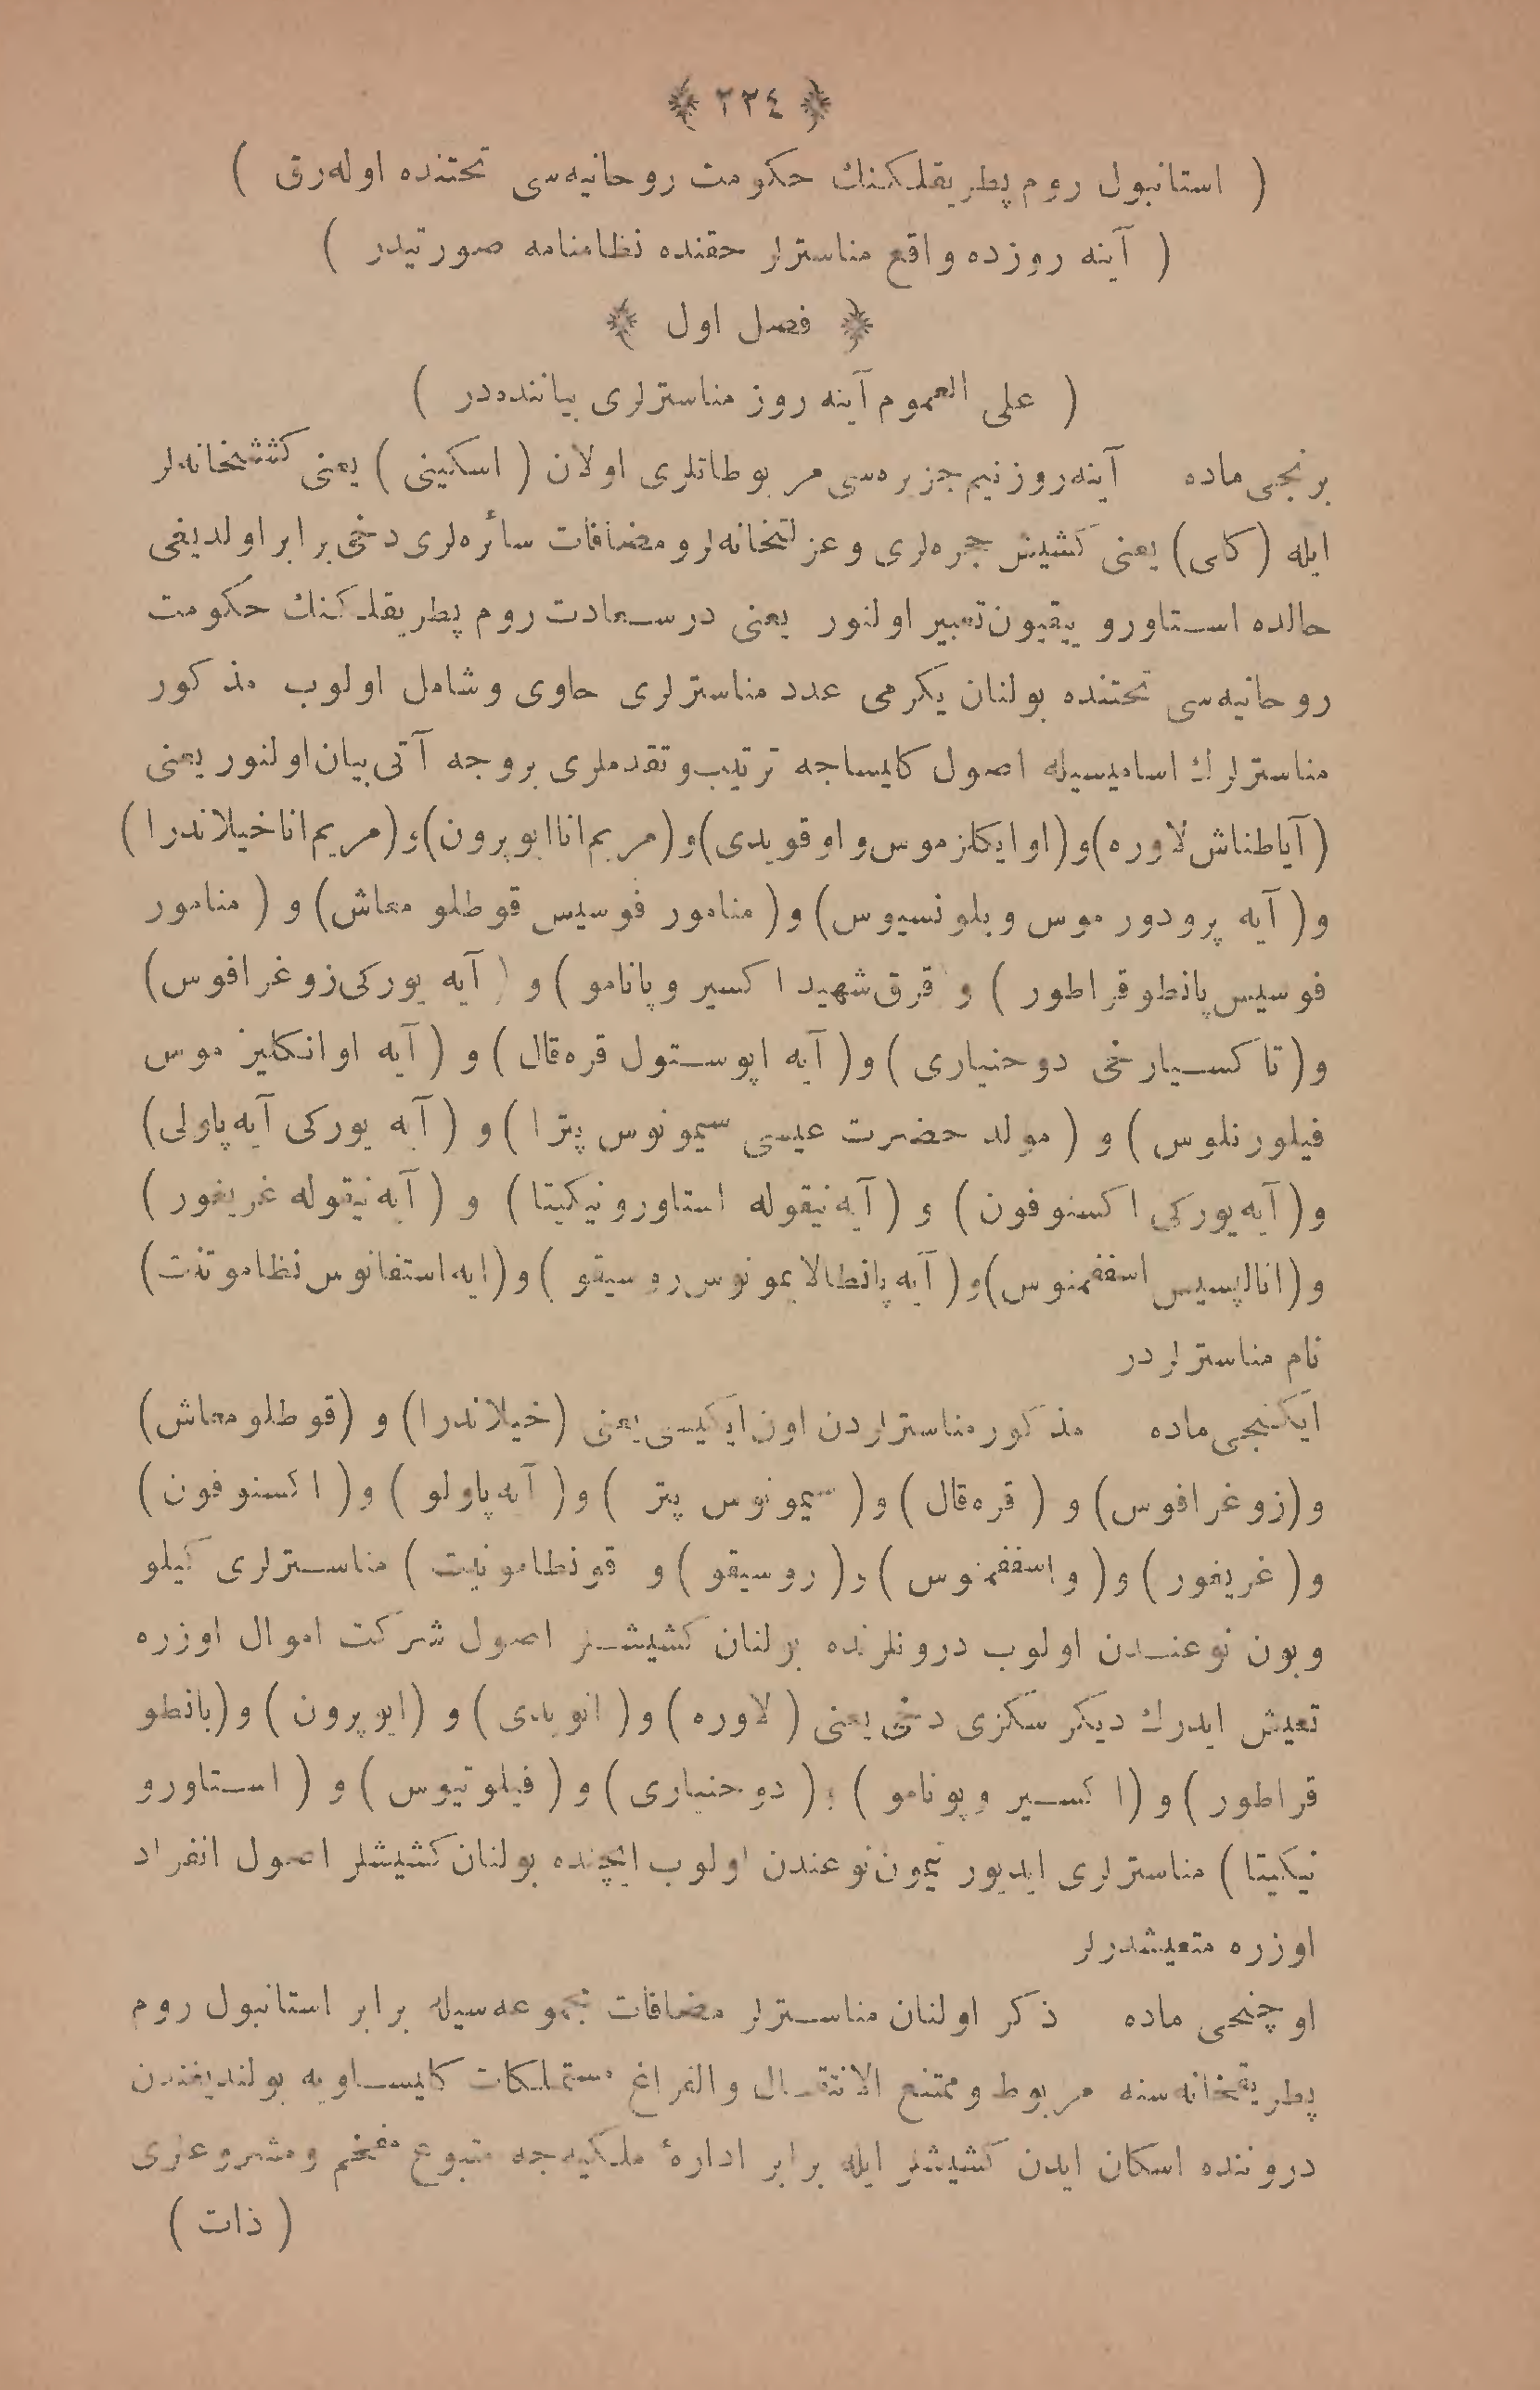 ﴿ ٢٣٤ ﴾
( استانبول روم پطريقلكنك حكومت روحانيه‌سى تحتنده اوله‌رق )
( آينه روزده واقع مناسترلر حقنده نظامنامه صورتيدر )
﴿ فصل اول ﴾
( على العموم آينه روز مناسترلرى بياننده‌در )
برنجى ماده آينه‌روز نيم جزيره‌سى مربوطاتلرى اولان ( اسكيتى ) يعنى كششخانه‌لر
ايله ( كلى ) يعنى كشيش حجره‌لرى و عزلتخانه‌لر و مضافات سائره‌لرى دخى برابر اولديغى
حالده استاورو پيقيون تعبير اولنور يعنى درسعادت روم پطريقلكنك حكومت
روحانيه‌سى تحتنده بولنان يكرمى عدد مناسترلرى حاوى و شامل اولوب مذكور
مناسترلرك اساميسيله اصول كليساجه ترتيب و تقدملرى بروجه آتى بيان اولنور يعنى
(آياطناش لاوره) و (اوايكلزموس و اوقويدى) و (مريم انا ايوپرون) و (مريم انا خيلاندرا)
و (آيه پرودورموس و يلونسيوس) و (منامور فوسيس قوطلو معاش) و (منامور
فوسيس پانطوقراطور ) و قرق شهيد اكسير و پانامو ) و ( آيه يوركى زوغرافوس)
و (تاكسيارخى دوحنيارى ) و ( آيه اپوستول قره‌قال ) و ( آيه اوانكليز موس
فيلورنلوس ) و ( مولد حضرت عيسى سيمونوس پترا ) و ( آيه يوركى آيه پاولى)
و ( آيه يوركى اكسنوفون ) و ( آيه نيقوله استاورونيكيتا ) و ( آيه نيقوله غريغور )
و (انالپسيس اسفقمنوس) و ( آيه پانطالايمونوس روسيقو ) و (ايه استفانوس نظاموتنت)
نام مناسترلردر
ايكنجى ماده مذكور مناسترلردن اون ايكيسى يعنى (خيلاندرا) و (قوطلومعاش)
و (زوغرافوس) و ( قره‌قال ) و ( سيمونوس پتر ) و ( آيه پاولو ) و ( اكسنوفون )
و ( غريغور ) و ( و اسفقمنوس ) و ( روسيقو ) و قونطامونيت ) مناسترلرى كيلو
وبون نوعندن اولوب درونلرنده بولنان كشيشلر اصول شركت اموال اوزره
تعيش ايدرك ديكر سكزى دخى يعنى ( لاوره ) و ( انوبدى ) و (ايوپرون ) و (بانطو
قراطور ) و (اكسير و پونامو ) و ( دوحنيارى ) و ( فيلوتيوس ) و ( استاورو
نيكيتا ) مناسترلرى ايديور تيمون نوعندن اولوب ايچنده بولنان كشيشلر اصول انفراد
اوزره متعيشدرلر
اوچنجى ماده ذكر اولنان مناسترلر مضافات مجموعه‌سيله برابر استانبول روم
پطريقخانه‌سنه مربوط و ممتنع الانتقال والفراغ مستملكات كليساويه بولنديغندن
دروننده اسكان ايدن كشيشلر ايله برابر ادارۀ ملكيه‌جه متبوع مفخم و مشروعلرى
( ذات )